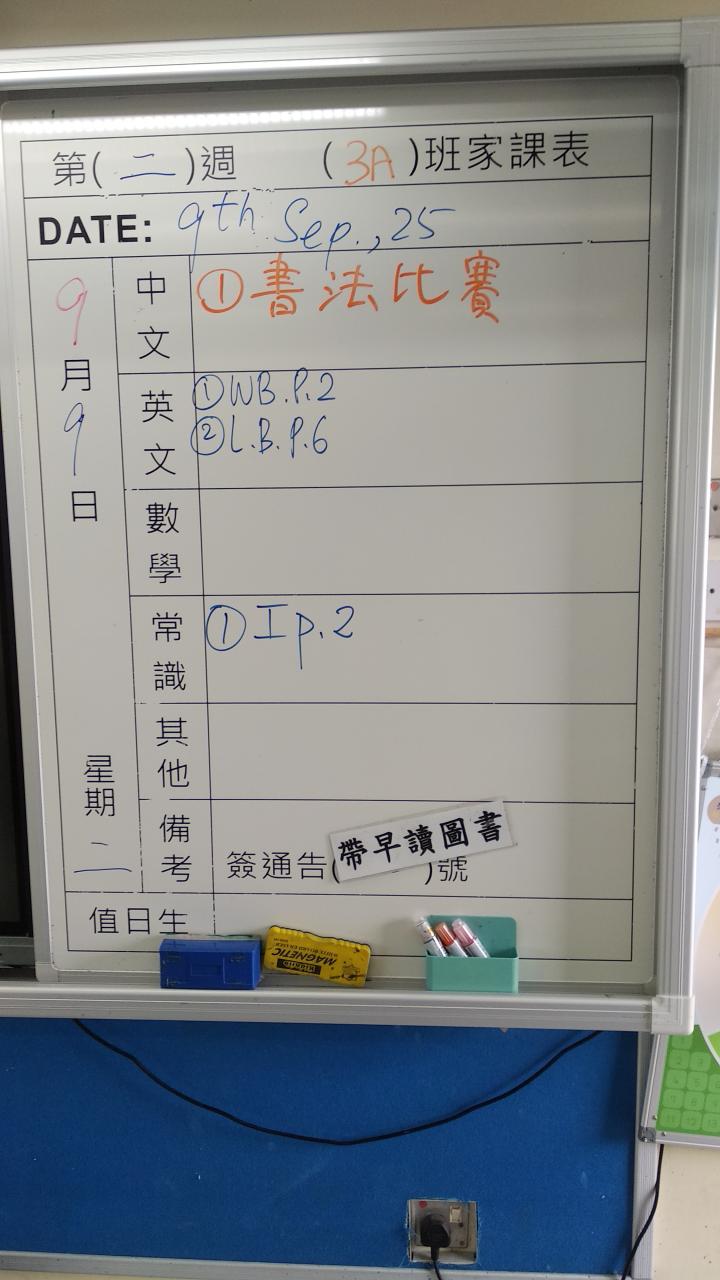 第(二)週 (3A)班家課表
DATE: 9th Sep., 25
9月9日
星期二
中文
①書法比賽
英文
①WB.P.2
②L.B.P.6
數學
常識
①I p.2
其他
備考
簽通告( )號
帶早讀圖書
值日生
MAGNETIC